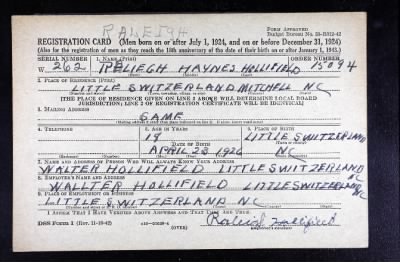 RALEIGH
FORM APPROVED
REGISTRATION CARD (Men born on or after July 1, 1924, and on or before December 31, 1924)
(Also for the registration of men as they reach the 18th anniversary of the date of their birth on or after January 1, 1943.)
SERIAL NUMBER 1. NAME (Print) ORDER NUMBER
W 262 RALIEGH HAYNES HOLLIFIELD 15094
2. PLACE OF RESIDENCE (Print)
LITTLE SWITZERLAND MITCHELL NC
[THE PLACE OF RESIDENCE GIVEN ON LINE 2 ABOVE WILL DETERMINE LOCAL BOARD
JURISDICTION; LINE 2 OF REGISTRATION CERTIFICATE WILL BE IDENTICAL]
3. MAILING ADDRESS
SAME
4. TELEPHONE 5. AGE IN YEARS 6. PLACE OF BIRTH
18 LITTLE SWITZERLAND
DATE OF BIRTH
APRIL 23 1926 NC
7. NAME AND ADDRESS OF PERSON WHO WILL ALWAYS KNOW YOUR ADDRESS
WALTER HOLLIFIELD LITTLE SWITZERLAND NC
8. EMPLOYER'S NAME AND ADDRESS
WALLTER HOLLIFIELD LITTLE SWITZERLAND NC
9. PLACE OF EMPLOYMENT OR BUSINESS
LITTLE SWITZERLAND NC
I AFFIRM THAT I HAVE VERIFIED ABOVE ANSWERS AND THAT THEY ARE TRUE.
DSS Form 1 (OVER) Raleigh Hollifield